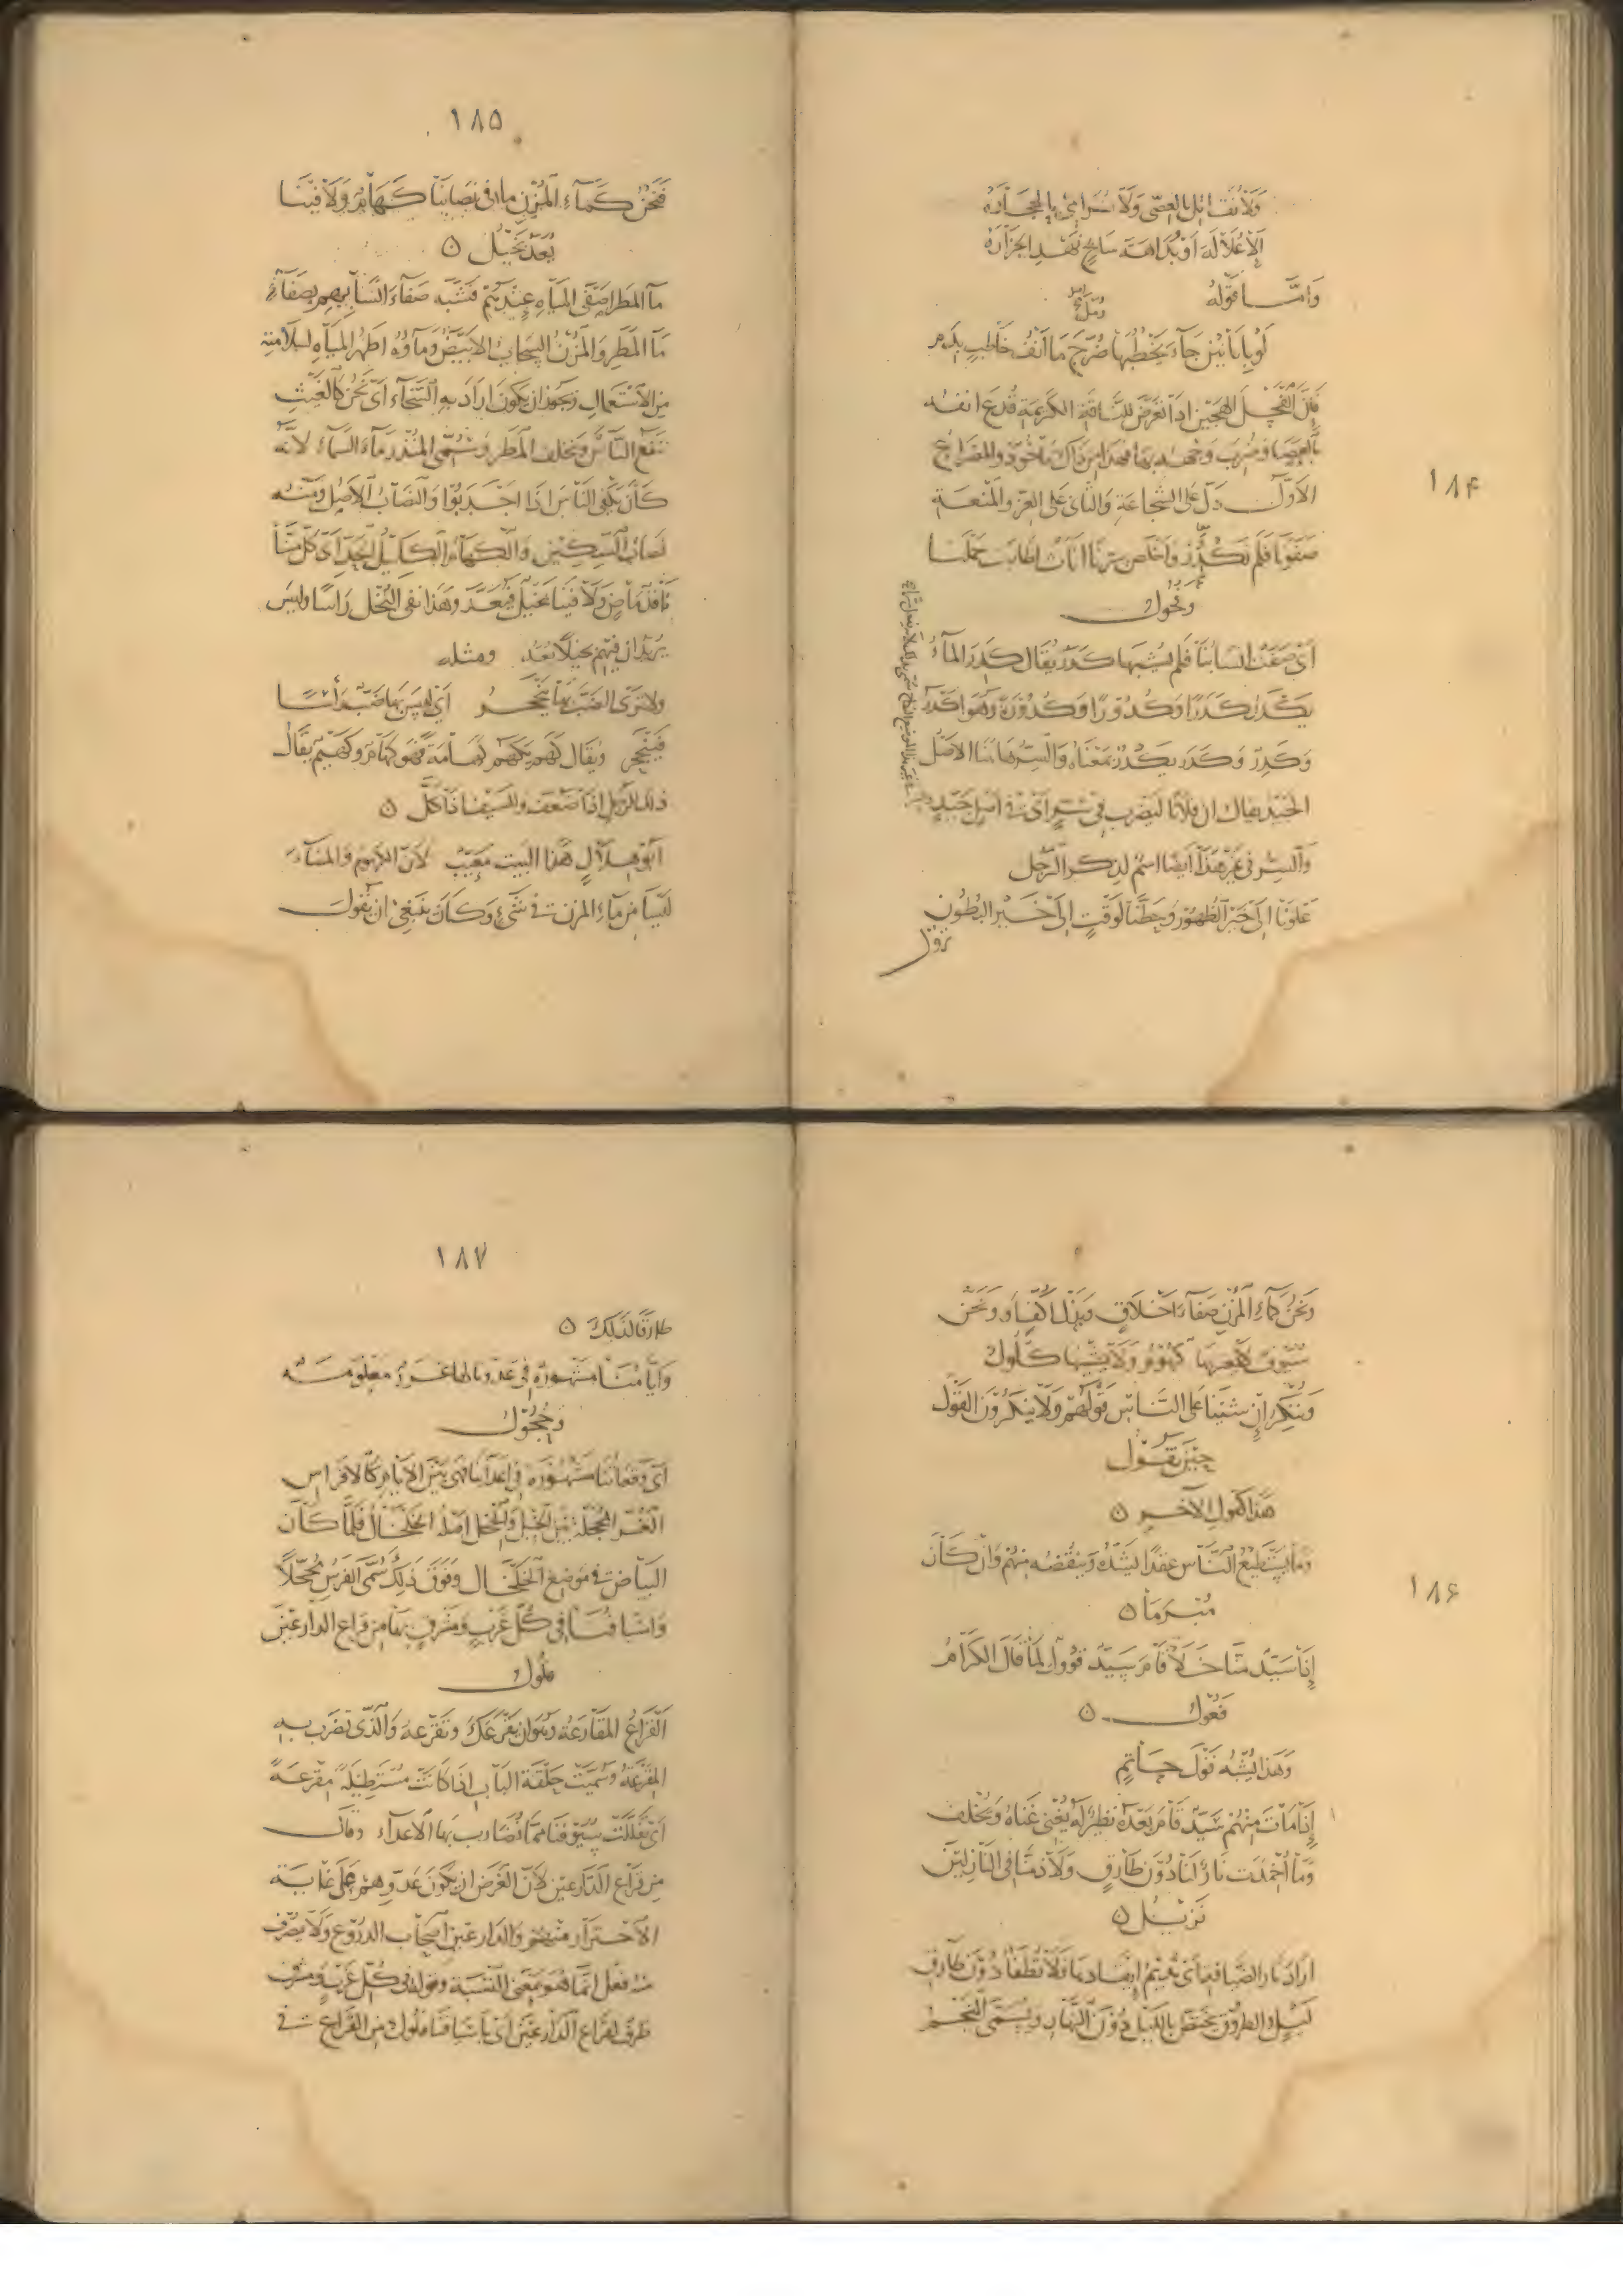 ١٨۴
ولا نقاتل بالعصي ولا نرامي بالحجاره
إلا علالة أو بداهة سابح نهد الجزاره
وأما قوله
لو بأبانين جاء يخطبها ضرج ما أنف خاطب بدم
فإن الفحل الهجين إذا تعرض للناقة الكريمة قدع أنفه
بالعصا وضرب وجهه بها فهذا من ذاك مأخوذ والمصراع
الأول دل على الشجاعة والثاني على العز والمنعة
صفونا فلم نكدر وأخلص سرنا إناث أطابت حملنا
وفحول
أي صفت أنسابنا فلم يشبها كدر يقال كدر الماء
يكدر كدرا وكدورا وكدورة وهو أكدر
وكدر وكدر يكدر بمعناه والسر هاهنا الأصل
الجيد يقال إن فلانا ليضرب في سر أي في أصل جيد
والسر في غير هذا أيضا اسم لذكر الرجل
علونا إلى خير الظهور وحطنا لوقت إلى خير البطون
نزول
١٨۵
فنحن كماء المزن ما في نصابنا كهام ولا فينا
يعد بخيل ه
ماء المطر أصفى المياه عندهم فشبه صفاء أنسابهم بصفاء
ماء المطر والمزن السحاب الأبيض وماؤه أطهر المياه لسلامته
من الاستعمال ويجوز أن يكون أراد به السخاء أي نحن كالغيث
ننفع الناس ونخلف المطر وسمي المنذر ماء السماء لأنه
كان يكفي الناس إذا أجدبوا والنصاب الأصل ومنه
نصاب السكين والكهام الكليل الحد أي كل منا
نافذ ماض ولا فينا بخيل فيعد وهذا نفي البخل رأسا وليس
يريد أن فيهم بخيلا يعد ومثله
ولا ترى الضب بها ينجحر أي ليس بها ضب رأسا
فينجحر ويقال كهم يكهم كهامة فهو كهام وكهيم يقال
ذلك للرجل إذا ضعف وللسيف إذا كل ه
أبو هلال هذا البيت معيب لأن الكهام والمضاء
ليسا من ماء المزن في شيء وكان ينبغي أن يقول
١٨۶
ونحن كماء المزن صفاء أخلاق وبذل أكف أو ونحن
سيوف لا يعيبها كهوم ولا يشينها كلول
وننكر إن شئنا على الناس قولهم ولا ينكرون القول
حين نقول
هذا كقول الآخر ه
وما يستطيع الناس عقدا نشده وننقضه منهم وإن كان
مبرما ه
إذا سيد منا خلا قام سيد قؤول لما قال الكرام
فعول ه
وهذا يشبه قول حاتم
إذا مات منهم سيد قام بعده نظير له يغني غناه ويخلف
وما أخمدت نار لنا دون طارق ولا ذمنا في النازلين
نزيل ه
أراد نار الضيافة أي نديم إيقادها فلا تطفأ دون طارق
ليل والطروق يختص بالليل دون النهار ويسمى النجم
١٨٧
طارقا لذلك ه
وأيامنا مشهورة في عدونا لها غرر معلومة
وحجول
أي وقعاتنا مشهورة في أعدائنا فهي بين الأيام كالأفراس
الغر المحجلة بين الخيل والحجل أصله الخلخال فلما كان
البياض في موضع الخلخال وفوق ذلك سمي الفرس محجلا
وأسيافنا في كل غرب ومشرق بها من قراع الدارعين
فلول
القراع المقارعة وهو أن يقرعك وتقرعه والذي تضرب به
المقرعة وسميت حلقة الباب إذا كانت مستطيلة مقرعة
أي تفللت سيوفنا مما نضارب بها الأعداء وقال
من قراع الدارعين لأن الغرض أن يكون عدوهم على غاية
الاحتراز منهم والدارعين أصحاب الدروع ولا يصرف
منه فعل إنما هو بمعنى النسبة وقوله في كل غرب ومشرق
ظرف لقراع الدارعين أي بأسيافنا فلول من القراع في